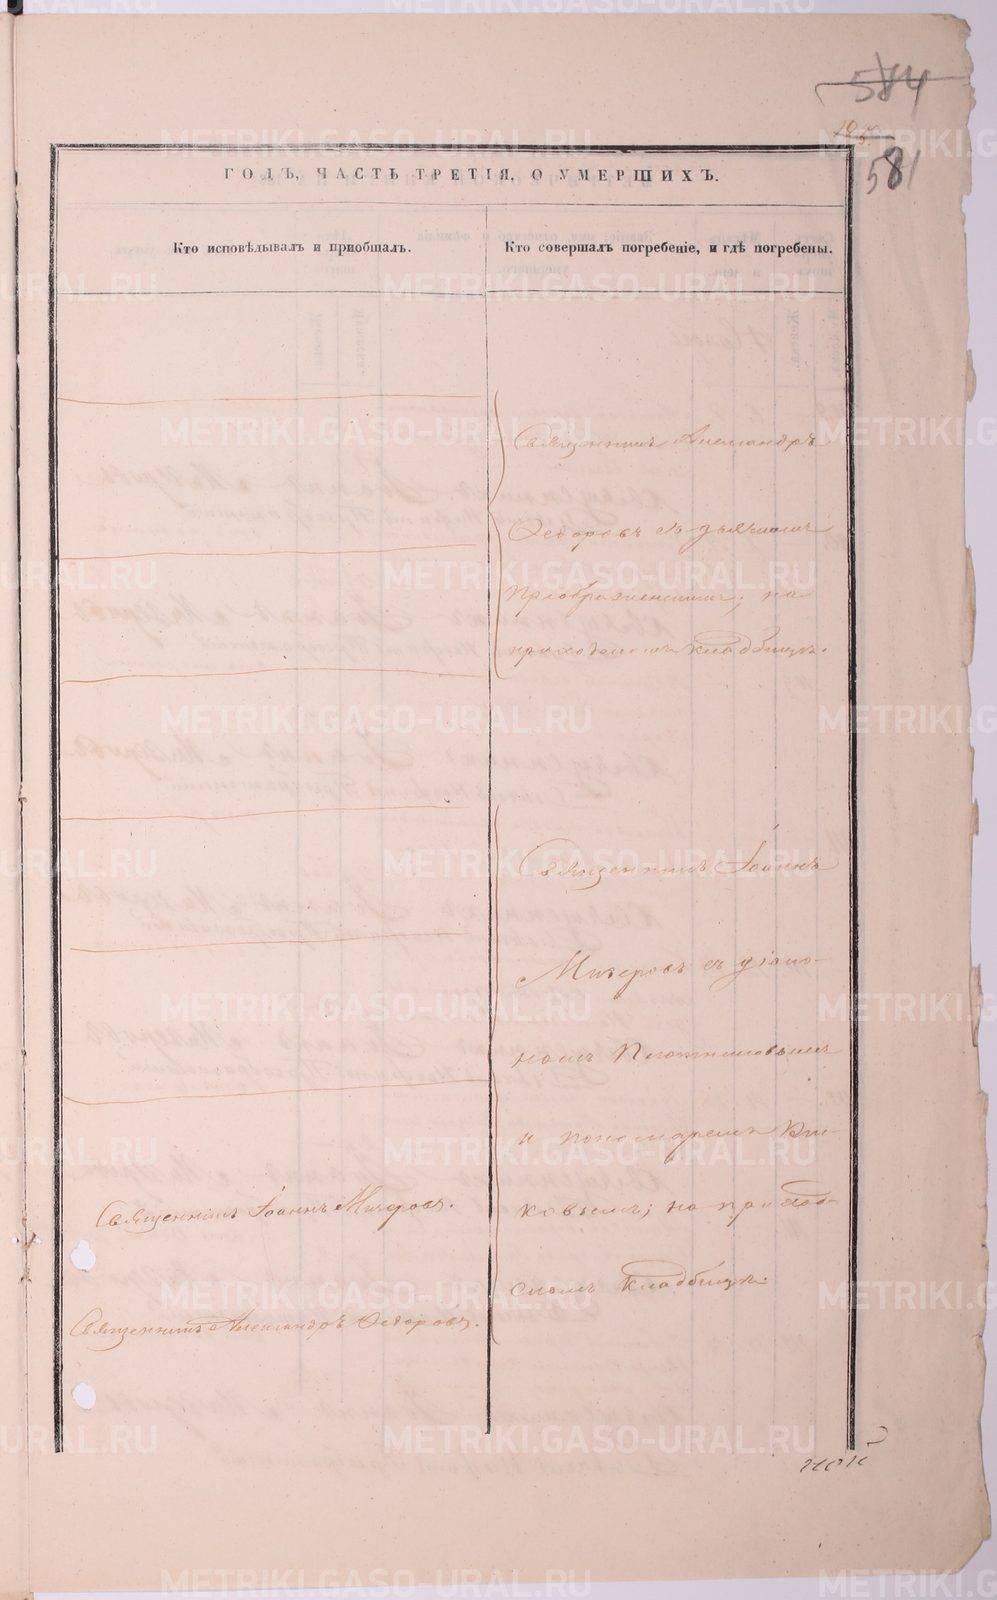 584
581
ГОДЪ, ЧАСТЬ ТРЕТІЯ, О УМЕРШИХЪ.
Кто исповѣдывалъ и пріобщалъ.
Кто совершалъ погребеніе, и гдѣ погребены.
Священникъ Александръ
Ѳедоровъ съ дьячкомъ
Преображенскимъ; на
приходскомъ кладбищѣ.
Священникъ Іоаннъ
Мизеровъ съ діако-
номъ Плотниковымъ
и пономаремъ
ковымъ; на приход-
скомъ кладбищѣ.
Священникъ Іоаннъ Мизеровъ.
Священникъ Александръ Ѳедоровъ.
METRIKI.GASO-URAL.RU